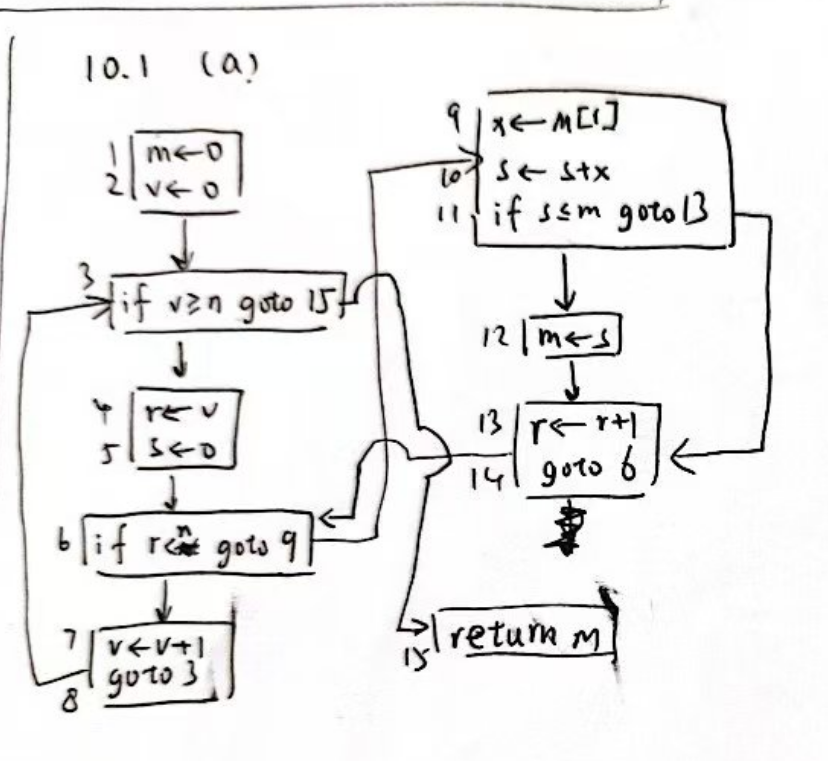 10.1 (a)
1 m←0
2 v←0
3 if v≥n goto 15
4 r←v
5 s←0
6 if r<n goto 9
7 v←v+1
8 goto 3
9 x←M[r]
10 s←s+x
11 if s≤m goto 13
12 m←s
13 r←r+1
14 goto 6
15 return m